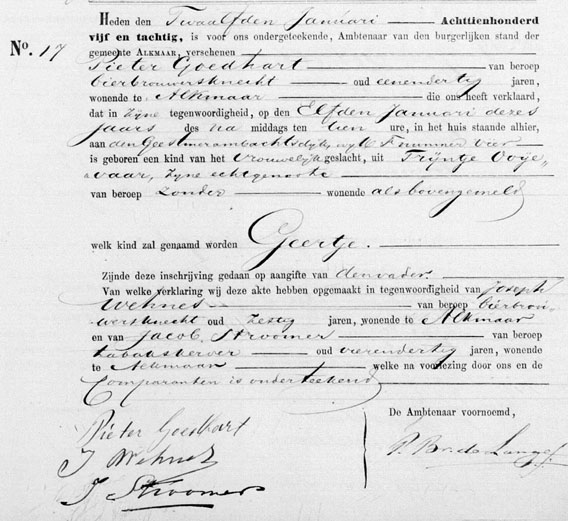 Nº. 17
Heden den Twaalfden Januari Achttienhonderd
vijf en tachtig, is voor ons ondergeteekende, Ambtenaar van den burgerlijken stand der
gemeente ALKMAAR, verschenen
Pieter Goedhart van beroep
bierbrouwersknecht oud eenendertig jaren,
wonende te Alkmaar die ons heeft verklaard,
dat in zijne tegenwoordigheid, op den Elfden Januari dezes
jaars des na middags ten tien ure, in het huis staande alhier,
aan den Geestmerambachtsdijk, wijk F nummer vier
is geboren een kind van het vrouwelijk geslacht, uit Trijntje Ooije-
vaar, zijne echtgenoote
van beroep zonder wonende als bovengemeld
welk kind zal genaamd worden Geertje.
Zijnde deze inschrijving gedaan op aangifte van den vader
Van welke verklaring wij deze akte hebben opgemaakt in tegenwoordigheid van Joseph
Wehnes van beroep bierbrou-
wersknecht oud zestig jaren, wonende te Alkmaar
en van Jacob Stroomer van beroep
tabakskerver oud vierendertig jaren, wonende
te Alkmaar welke na voorlezing door ons en de
Comparanten is onderteekend
De Ambtenaar voornoemd,
Pieter Goedhart
J Wehnes
J Stroomer